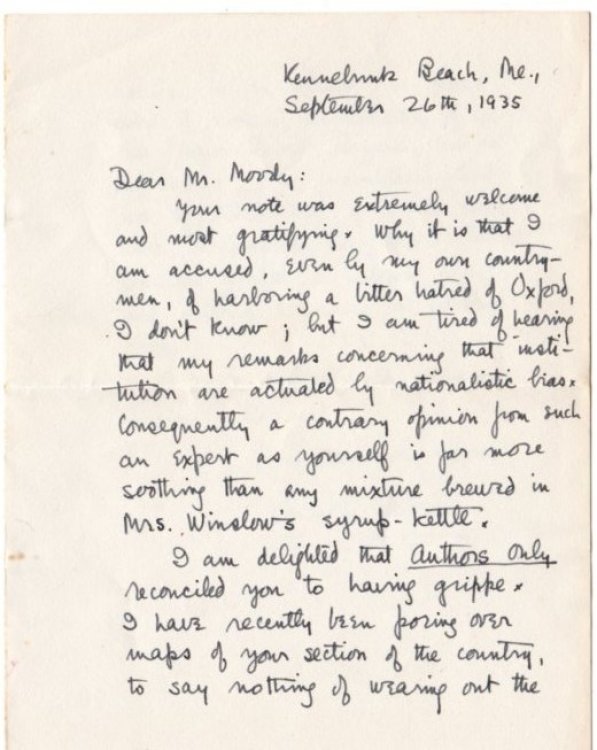 Kennebunk Beach, Me.,
September 26th, 1935
Dear Mr. Moody:
Your note was extremely welcome
and most gratifying. Why it is that I
am accused, even by my own country-
men, of harboring a bitter hatred of Oxford,
I don't know; but I am tired of hearing
that my remarks concerning that insti-
tution are actuated by nationalistic bias.
Consequently a contrary opinion from such
an expert as yourself is far more
soothing than any mixture brewed in
Mrs. Winslow's syrup-kettle.
I am delighted that Authors Only
reconciled you to having grippe.
I have recently been poring over
maps of your section of the country,
to say nothing of wearing out the